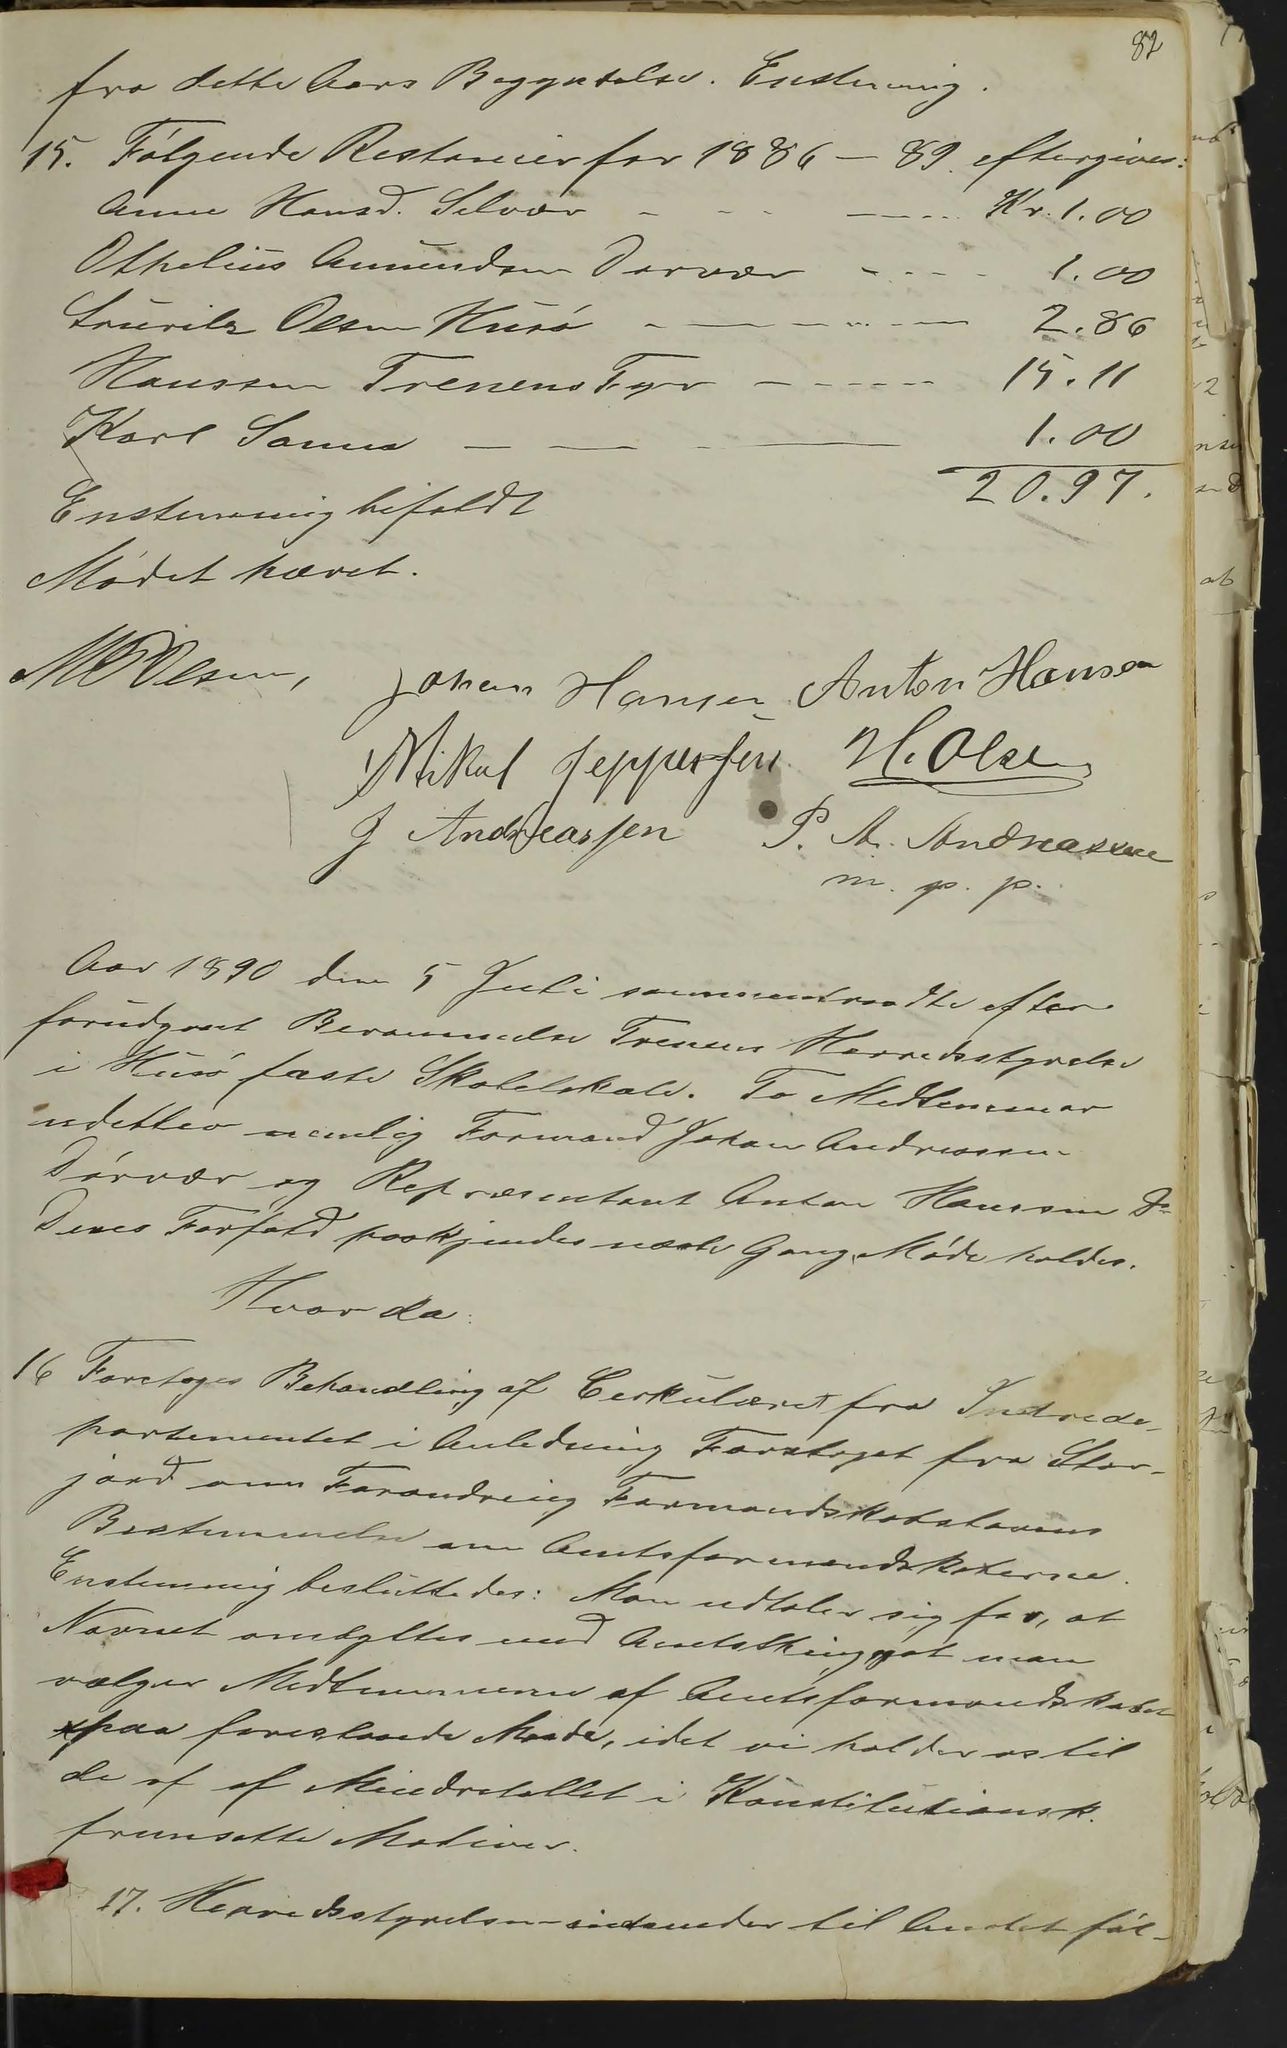 82
fra dette Aars Begyndelse. Enstemmig.
15. Følgende Restancer for 1886 - 89 eftergives:
Anne Hansd. Selvær - - - Kr. 1.00
Othelius Amundsen Dørvær - - - - 1.00
Olsen Husø - - - - - 2.86
Hanssen Trænens Fyr - - - - - 15.11
Karl Sanna - - - - 1.00
20.97.
Enstemmig bifaldt
Mødet hævet.
Olsen, Johan Hansen Anton Hansen
Mikal Jeppesen H. Olsen
J Andreassen P. A. Andreassen
m. p. p.
Aar 1890 den 5 Juli sammentraadte efter
forudgaaet Berammelse Trænens Herredsstyrelse
i Husø faste Skolelokale. To Medlemmer
udeblev nemlig Formand Johan Andreassen
Dørvær og Repræsentant Anton Hanssen Do
Deres Forfald paakjendes næste Gang Møde holdes.
Hvorda:
16 Foretoges Behandling af Cerkulæret fra Indrede-
partementet i Anledning Forslaget fra Stor-
jord om Forandring Formandskabslovens
Bestemmelse om Amtsformandskaberne.
Enstemmig besluttedes: Man udtaler sig for, at
Navnet ombyttes med Amtsthing, at man
vælger Medlemmerne af Amtsformandskabet
paa foreslaaede Maade, idet vi holder os til
de af af Mindretallet i Konstitutionsk.
fremsatte Motiver.
17. Herredsstyrelsen indsender til Amtet føl-